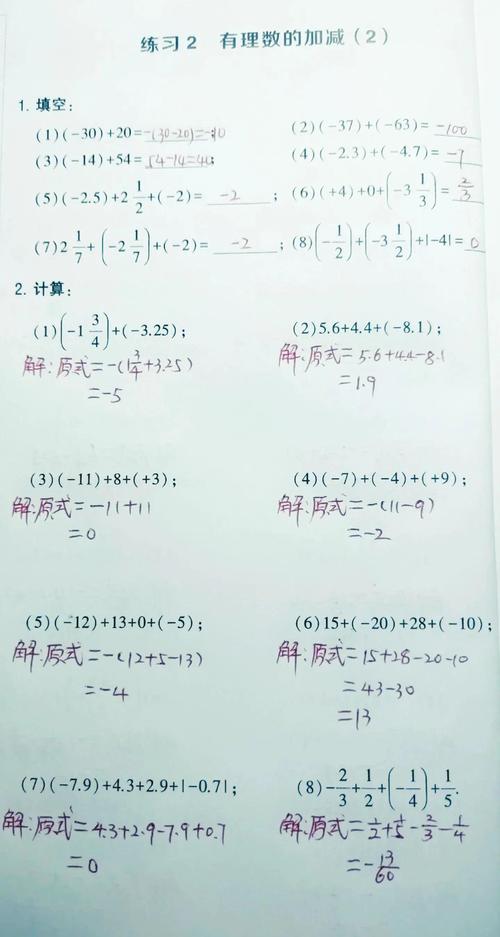 练习2 有理数的加减(2)
1. 填空:
(1)(-30)+20=-(30-20)=-10
(2)(-37)+(-63)=-100
(3)(-14)+54=54-14=40;
(4)(-2.3)+(-4.7)=-7
(5)(-2.5)+2 1/2+(-2)= -2 ;
(6)(+4)+0+(-3 1/3)= 2/3
(7)2 1/7+(-2 1/7)+(-2)= -2 ;
(8)(-1/2)+(-3 1/2)+|-4|=0
2. 计算:
(1)(-1 3/4)+(-3.25);
解:原式=-(1 3/4+3.25)
=-5
(2)5.6+4.4+(-8.1);
解:原式=5.6+4.4-8.1
=1.9
(3)(-11)+8+(+3);
解:原式=-11+11
=0
(4)(-7)+(-4)+(+9);
解:原式=-(11-9)
=-2
(5)(-12)+13+0+(-5);
解:原式=-(12+5-13)
=-4
(6)15+(-20)+28+(-10);
解:原式=15+28-20-10
=43-30
=13
(7)(-7.9)+4.3+2.9+|-0.7|;
解:原式=4.3+2.9-7.9+0.7
=0
(8)-2/3+1/2+(-1/4)+1/5.
解:原式=1/2+1/5-2/3-1/4
=-13/60